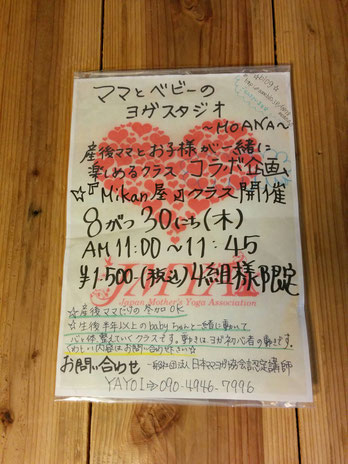 ママとベビーの
ヨガスタジオ
〜MOANA〜
産後ママとお子様が一緒に
楽しめるクラス コラボ企画
☆『Mikan屋』クラス開催
8がつ30にち(木)
AM 11:00〜11:45
¥1,500(税込) 4組様限定
JMYA
Japan Mother's Yoga Association
☆産後ママだけの参加OK
☆生後半年以上のbabyちゃんと一緒に動いて
心と体整えていくクラスです。動きは、ヨガ初心者の動きです。
くわしい内容はお問い合わせ下さい☆
お問い合わせ 一般社団法人 日本マザーヨガ協会認定講師
YAYOI⇒090-4946-7996